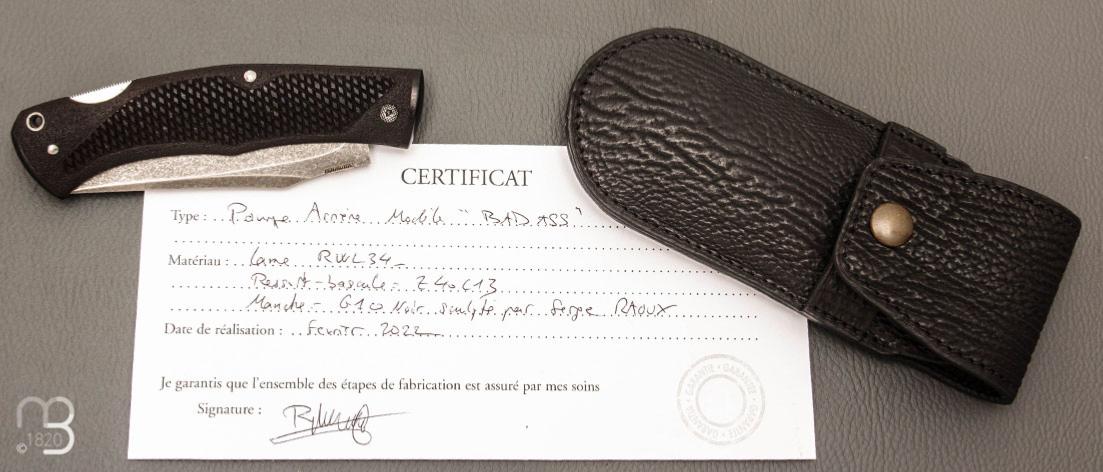 CERTIFICAT
Type : Pompe Arrière Modèle "BAD ASS"
Matériau : Lame RWL34
Ressort-bascule = Z40C13
Manche = G10 Noir sculpté par Serge RAOUX
Date de réalisation : février 2022
Je garantis que l'ensemble des étapes de fabrication est assuré par mes soins
Signature :
GARANTIE • GARANTIE • GARANTIE
MB
© 1820